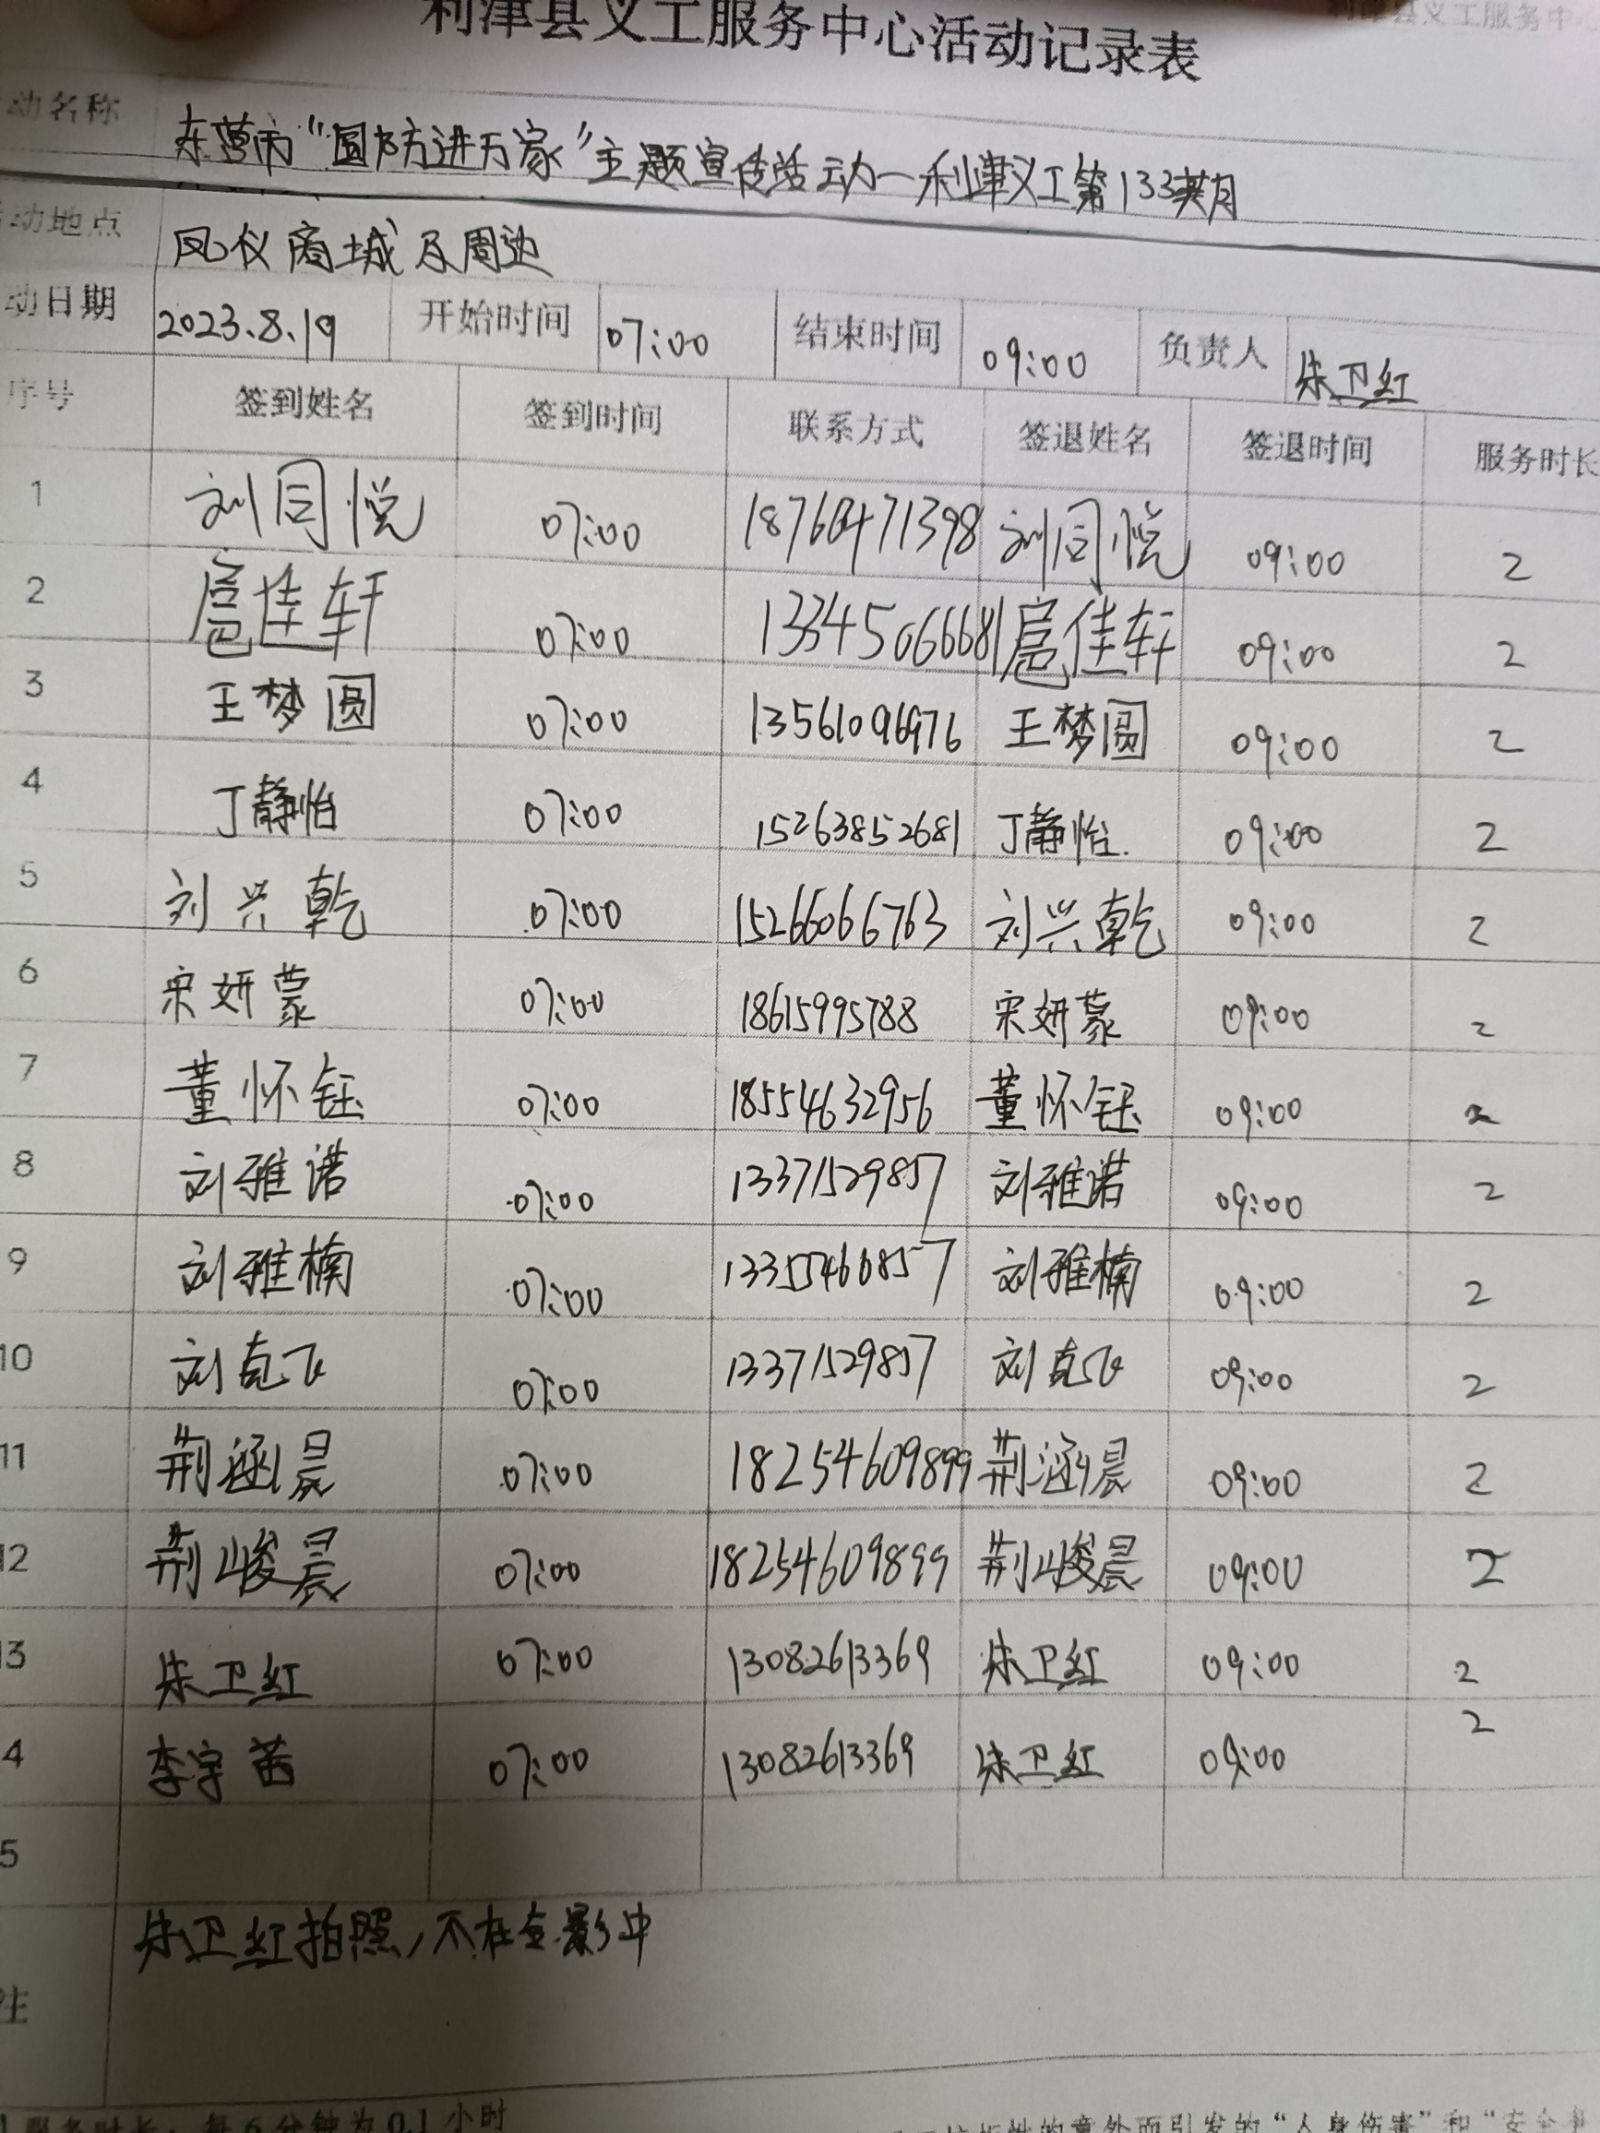 利津县义工服务中心活动记录表
利津县义工服务中心
动名称 东营市“国防进万家”主题宣传活动—利津义工第133期
动地点 凤仪商城及周边
动日期 2023.8.19 开始时间 07:00 结束时间 09:00 负责人 朱卫红
序号 签到姓名 签到时间 联系方式 签退姓名 签退时间 服务时长
1 刘同悦 07:00 刘同悦 09:00 2
2 扈佳轩 07:00 扈佳轩 09:00 2
3 王梦圆 07:00 13561096976 王梦圆 09:00 2
4 丁静怡 07:00 15263852681 丁静怡. 09:00 2
5 刘兴乾 07:00 15266066763 刘兴乾 09:00 2
6 宋妍蒙 07:00 18615995788 宋妍蒙 09:00 2
7 董怀钰 07:00 18554632956 董怀钰 09:00 2
8 刘雅诺 07:00 13371529857 刘雅诺 09:00 2
9 刘雅楠 07:00 13355466857 刘雅楠 09:00 2
10 刘克飞 07:00 13371529857 刘克飞 09:00 2
11 荆涵晨 07:00 18254609899 荆涵晨 09:00 2
12 荆峻晨 07:00 18254609899 荆峻晨 09:00 2
13 朱卫红 07:00 13082613369 朱卫红 09:00 2
4 李宇茜 07:00 13082613369 朱卫红 09:00 2
5
注 朱卫红拍照，不在合影中
服务时长：每6分钟为0.1小时
抗拒性的意外而引发的“人身伤害”和“安全事